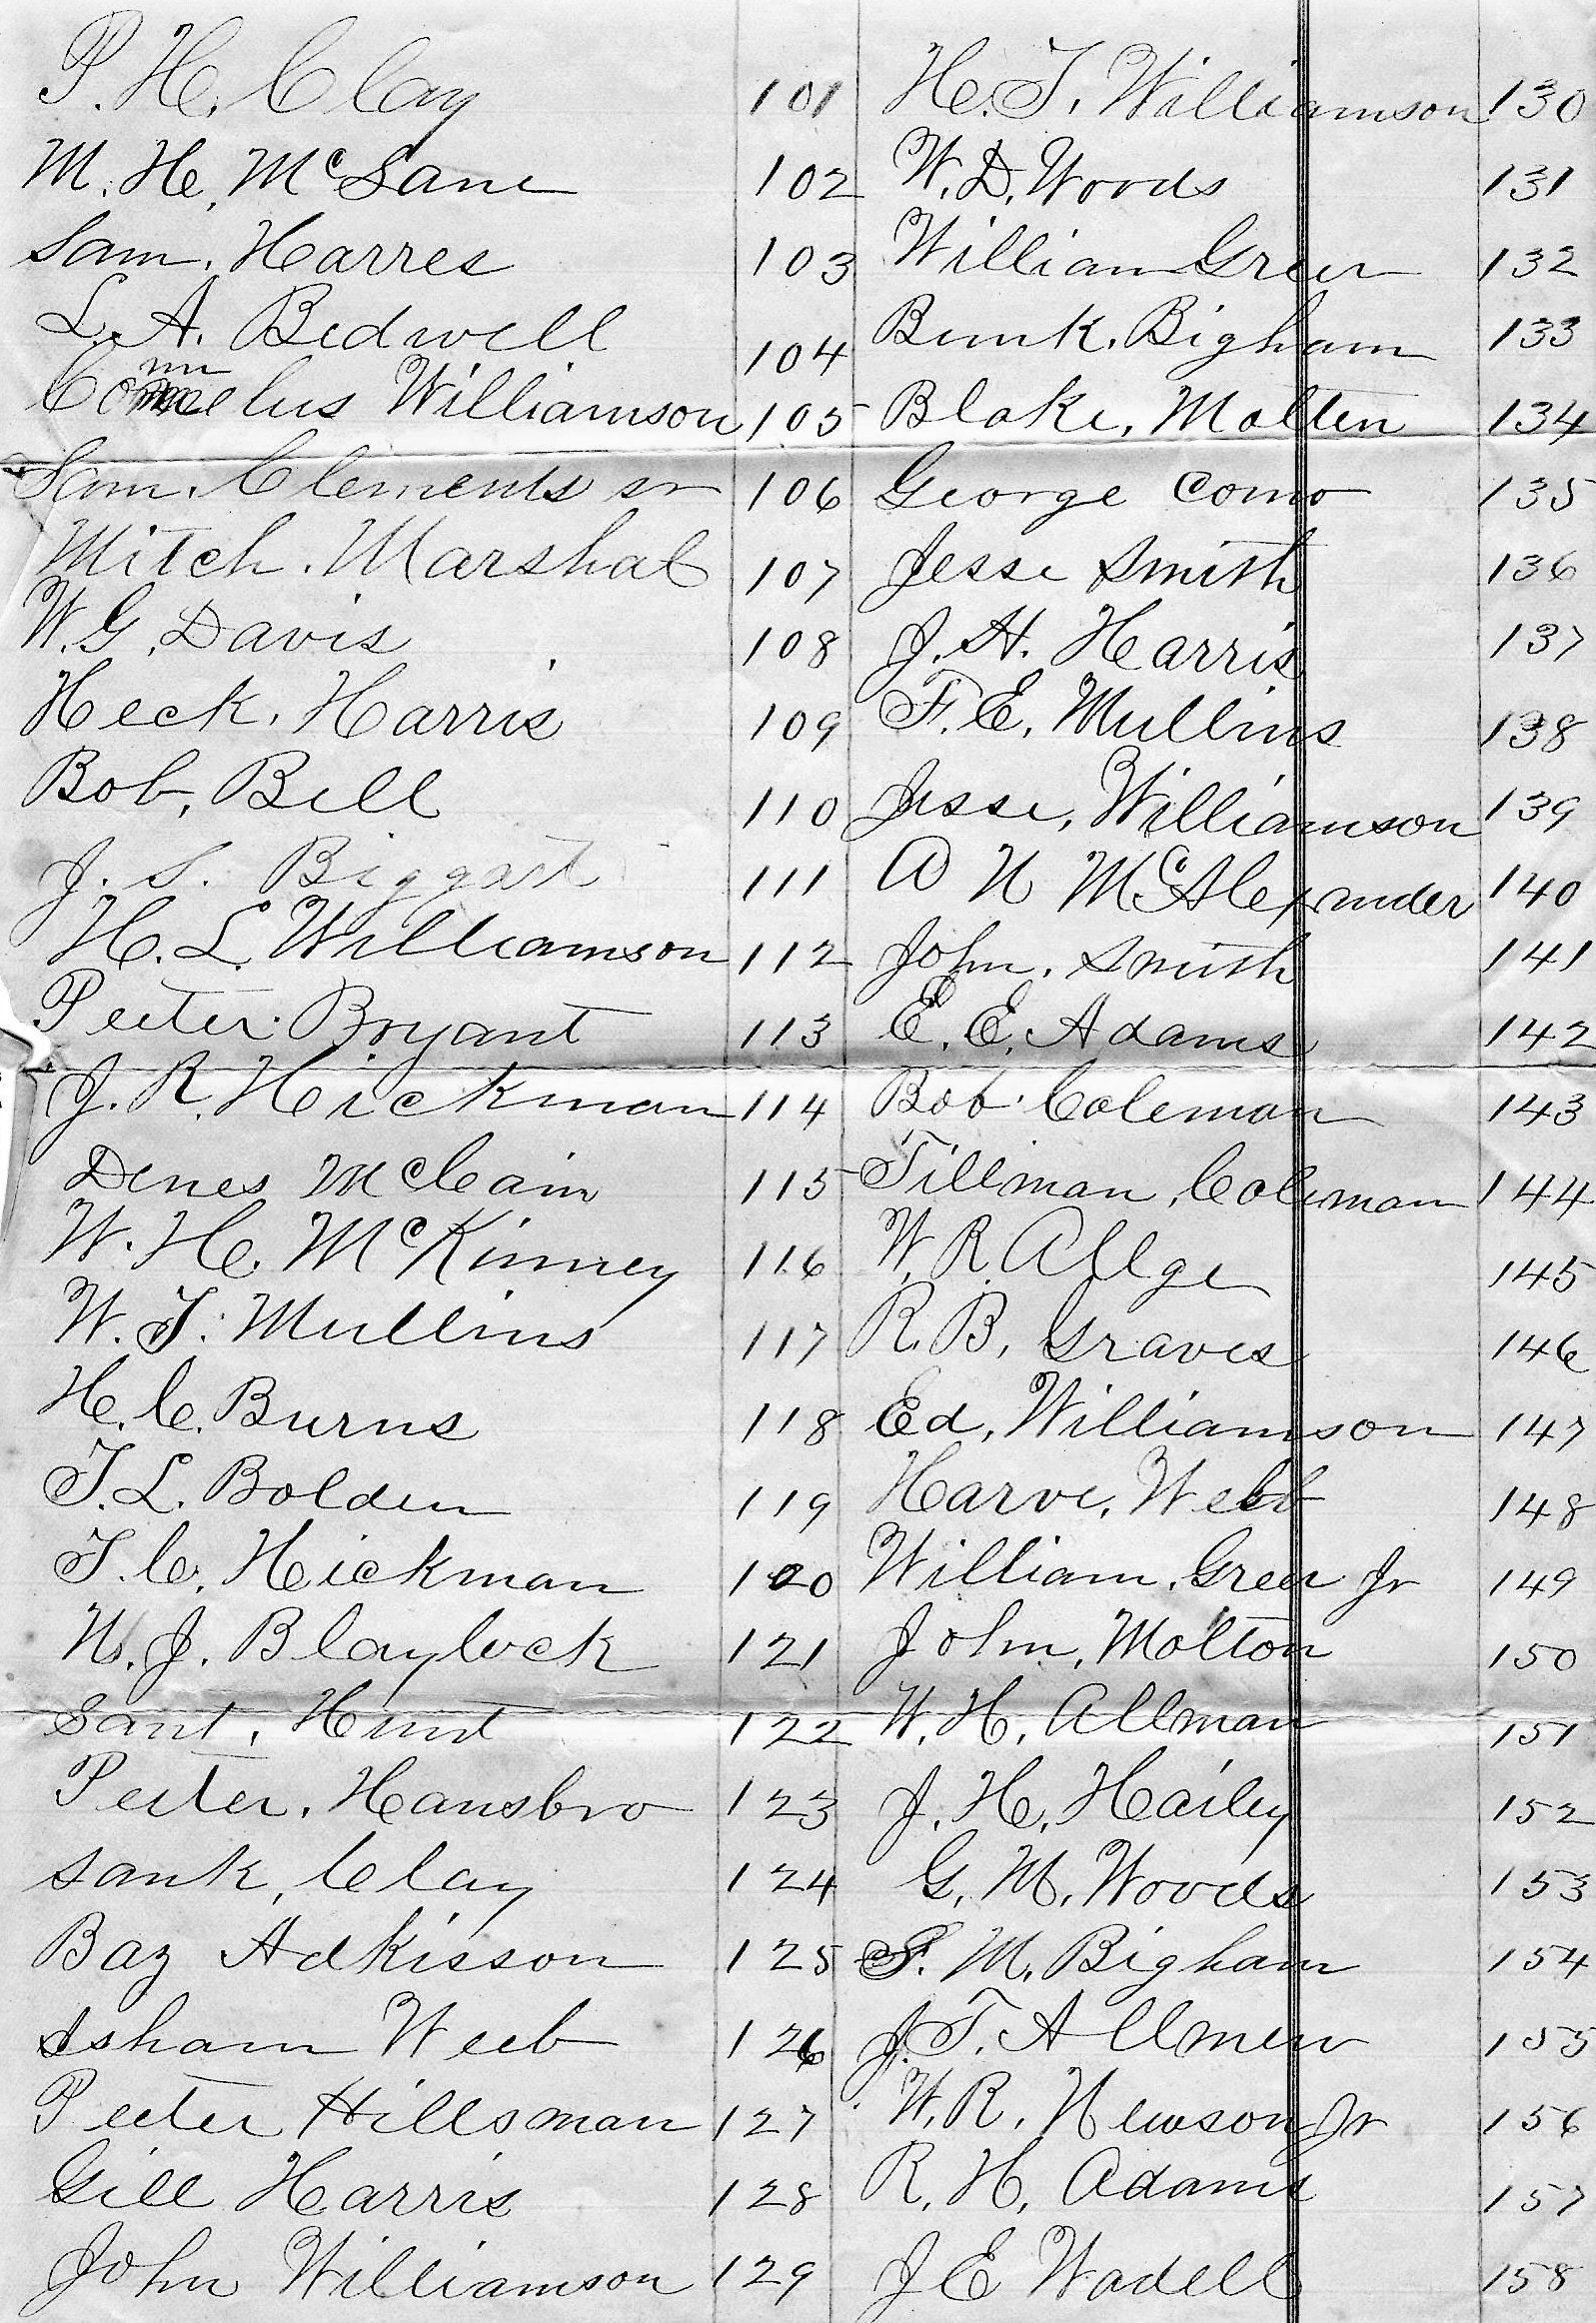 P. H. Clay 101
M. H. McLane 102
Sam. Harres 103
L. A. Bedwell 104
Williamson 105
Sam. Clements sr 106
Mitch. Marshal 107
W. G. Davis 108
Heck. Harris 109
Bob, Bell 110
J. S. Biggart 111
H. L. Williamson 112
Peeter. Bryant 113
J. R. Hickman 114
Denes McCain 115
W. H. McKinney 116
W. T. Mullins 117
H. C. Burns 118
T. L. Bolden 119
T. C. Hickman 120
W. J. Blaylock 121
Sant, Hunt 122
Peeter, Hansbro 123
Sank, Clay 124
Baz Adkisson 125
Isham Weeb 126
Peeter Hillsman 127
Gill Harris 128
John Williamson 129
H. T. Williamson 130
W. D. Woods 131
William Greer 132
Bunk. Bigham 133
Blake, Molten 134
George Como 135
Jesse Smith 136
J. H. Harris 137
F. E. Mullins 138
Jesse, Williamson 139
A N McAlexander 140
John. Smith 141
E. E. Adams 142
Bob Coleman 143
Tillman, Coleman 144
W. R. Allge 145
R. B. Graves 146
Ed, Williamson 147
Harve, Webb 148
William. Greer Jr 149
John, Molton 150
W. H. Allman 151
J. H. Hailey 152
G. M. Woods 153
S. M. Bigham 154
J. T. Allmen 155
W. R. Newson Jr 156
R. H. Adams 157
J E Wadell 158